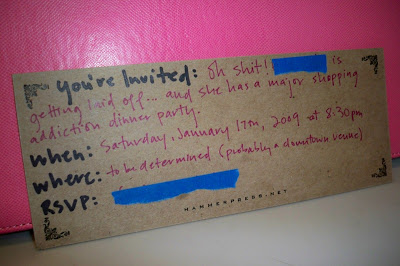 You're Invited: oh shit! is
getting laid off... and she has a major shopping
addiction dinner party.
When: Saturday, January 17th, 2009 at 8:30pm
Where: to be determined (probably a downtown venue)
RSVP:
HAMMERPRESS.NET